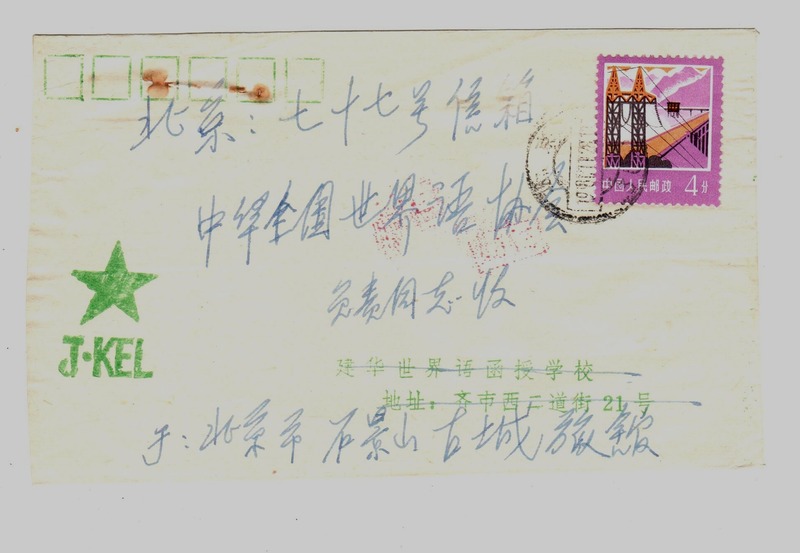 北京：七十七号信箱
中国人民邮政 4分
中华全国世界语协会
负责同志收
J·KEL
建华世界语函授学校
地址：齐市西二道街21号
于：北京市石景山古城旅馆